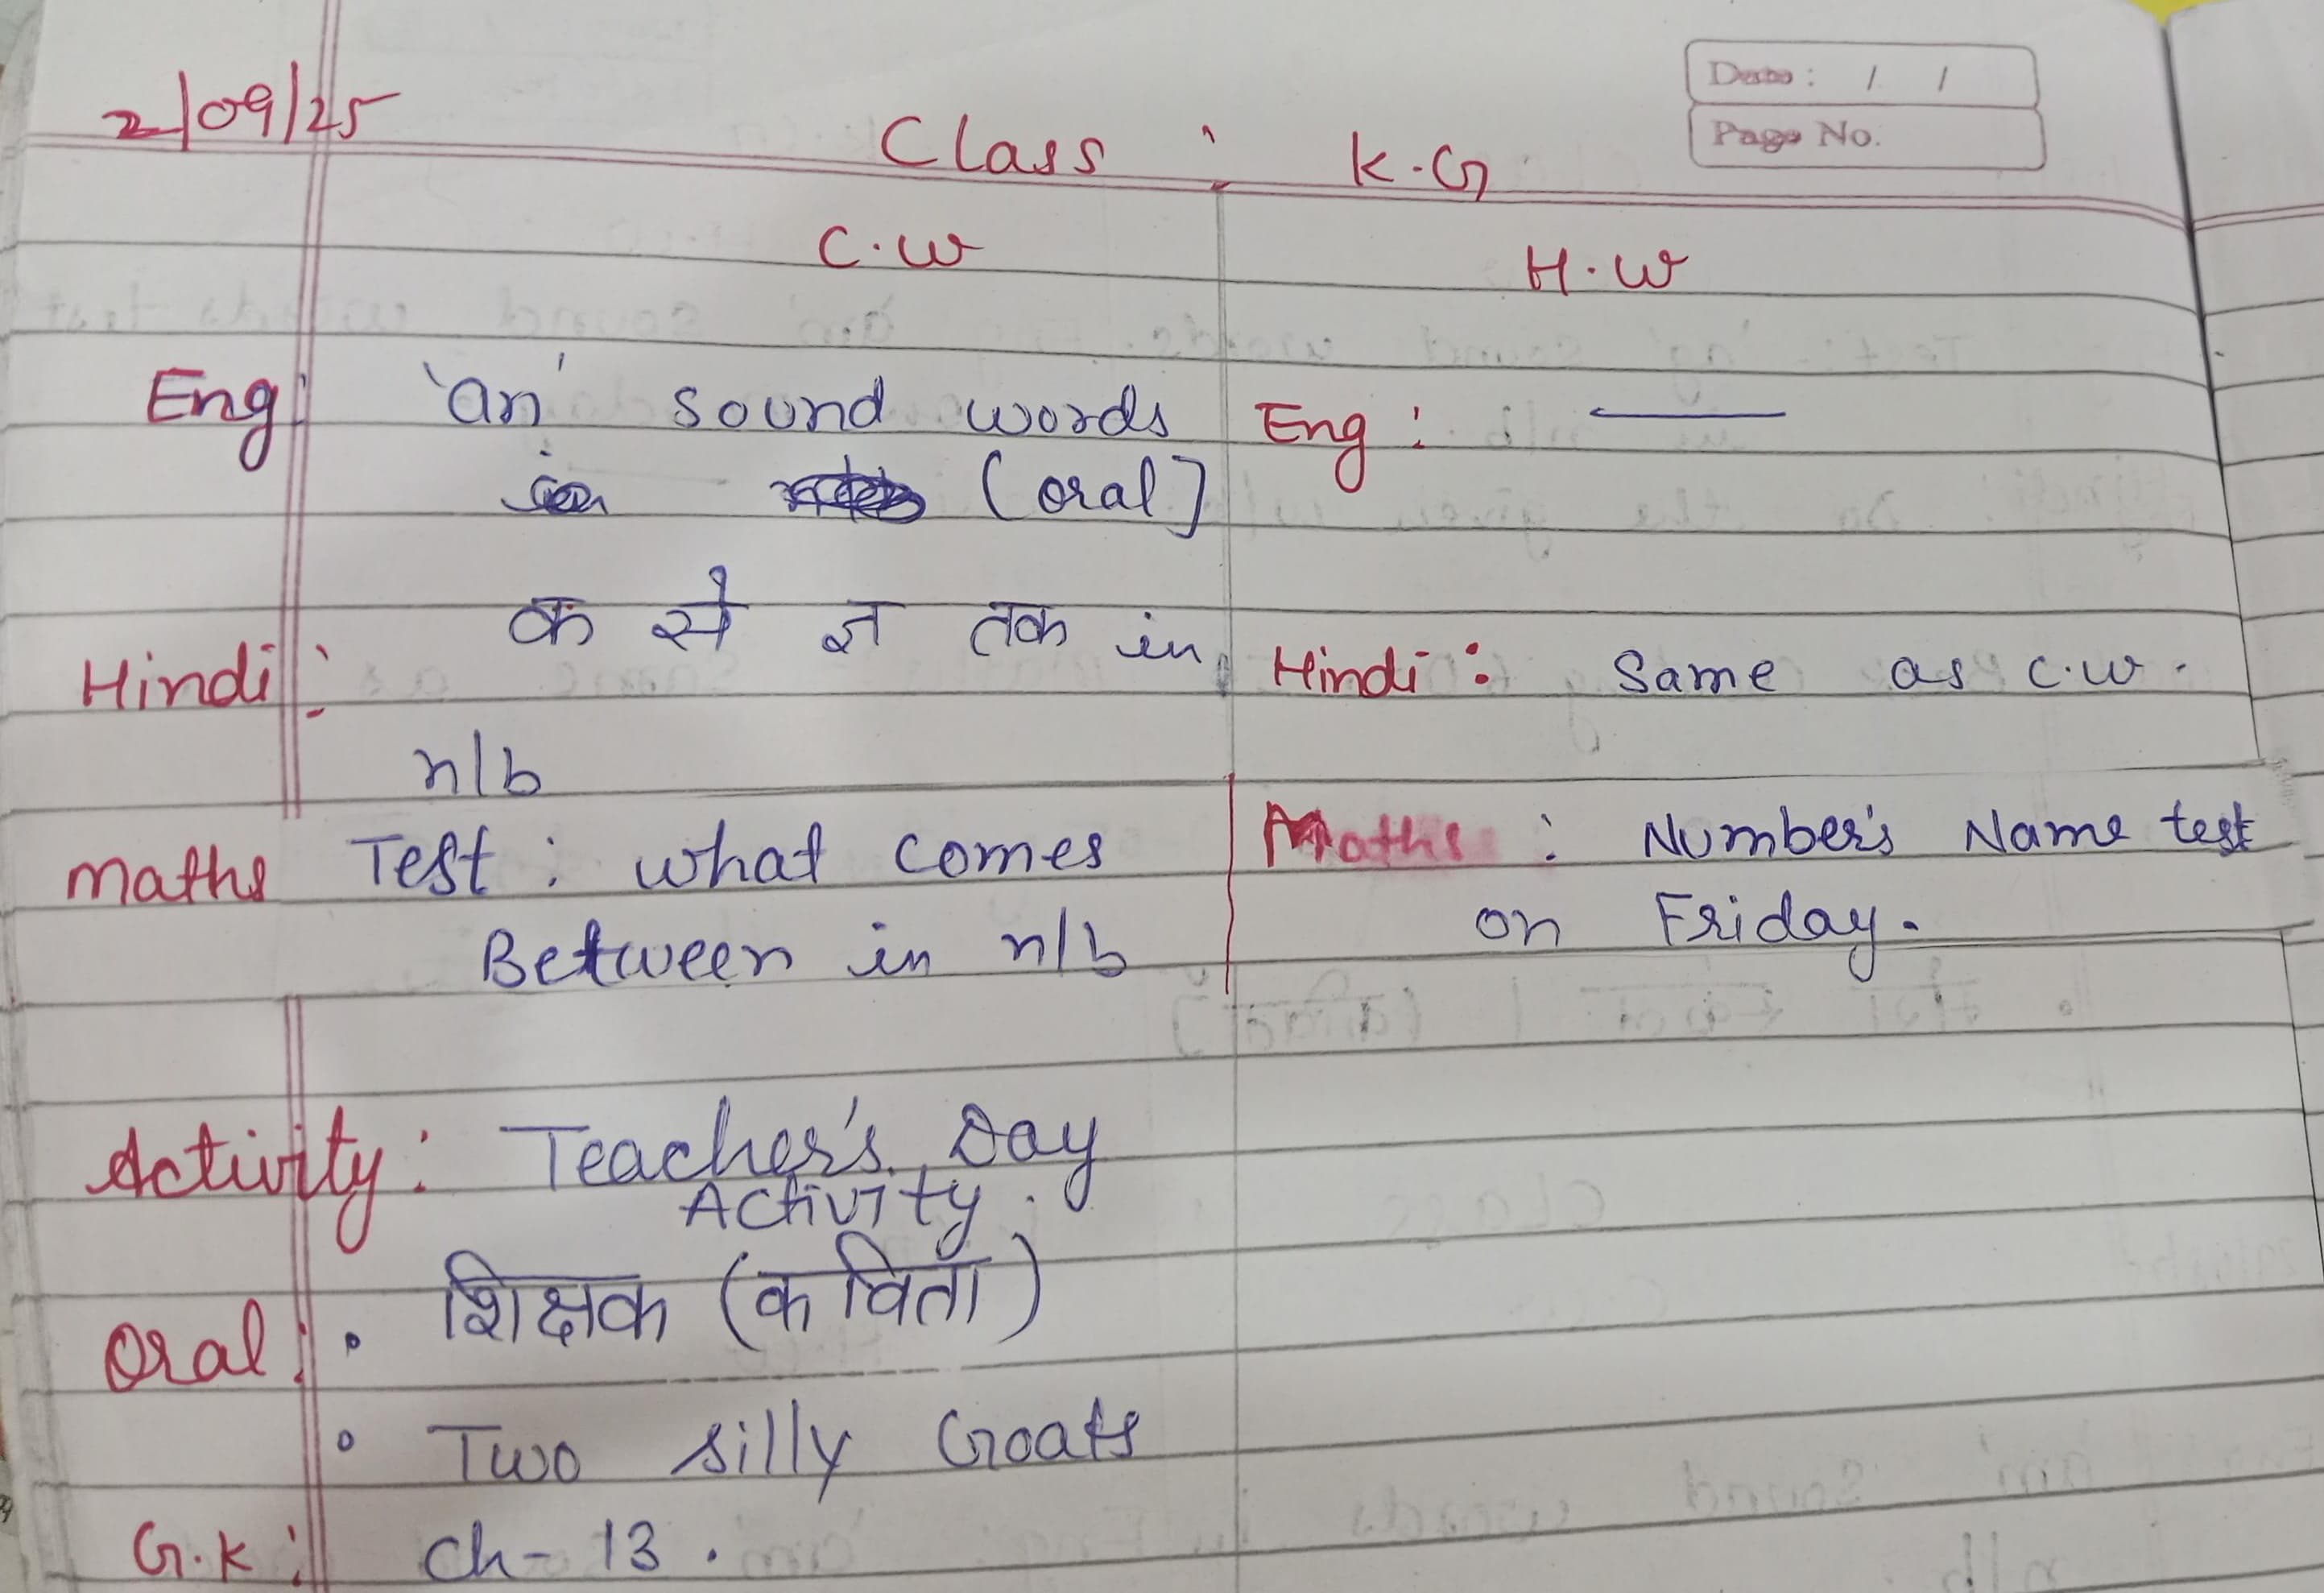 2/09/25
Date : / /
Page No.
Class : K.G
C.W H.W
Eng: 'an' sound words Eng :
in (oral]
Hindi : क से ज्ञ तक in Hindi : Same as C.W.
n/b
Maths Test : what comes Maths : Number's Name test
Between in n/b on Friday.
Activity : Teacher's Day
Activity.
Oral : • शिक्षक (कविता)
• Two silly Goats
G.K : Ch- 13 .